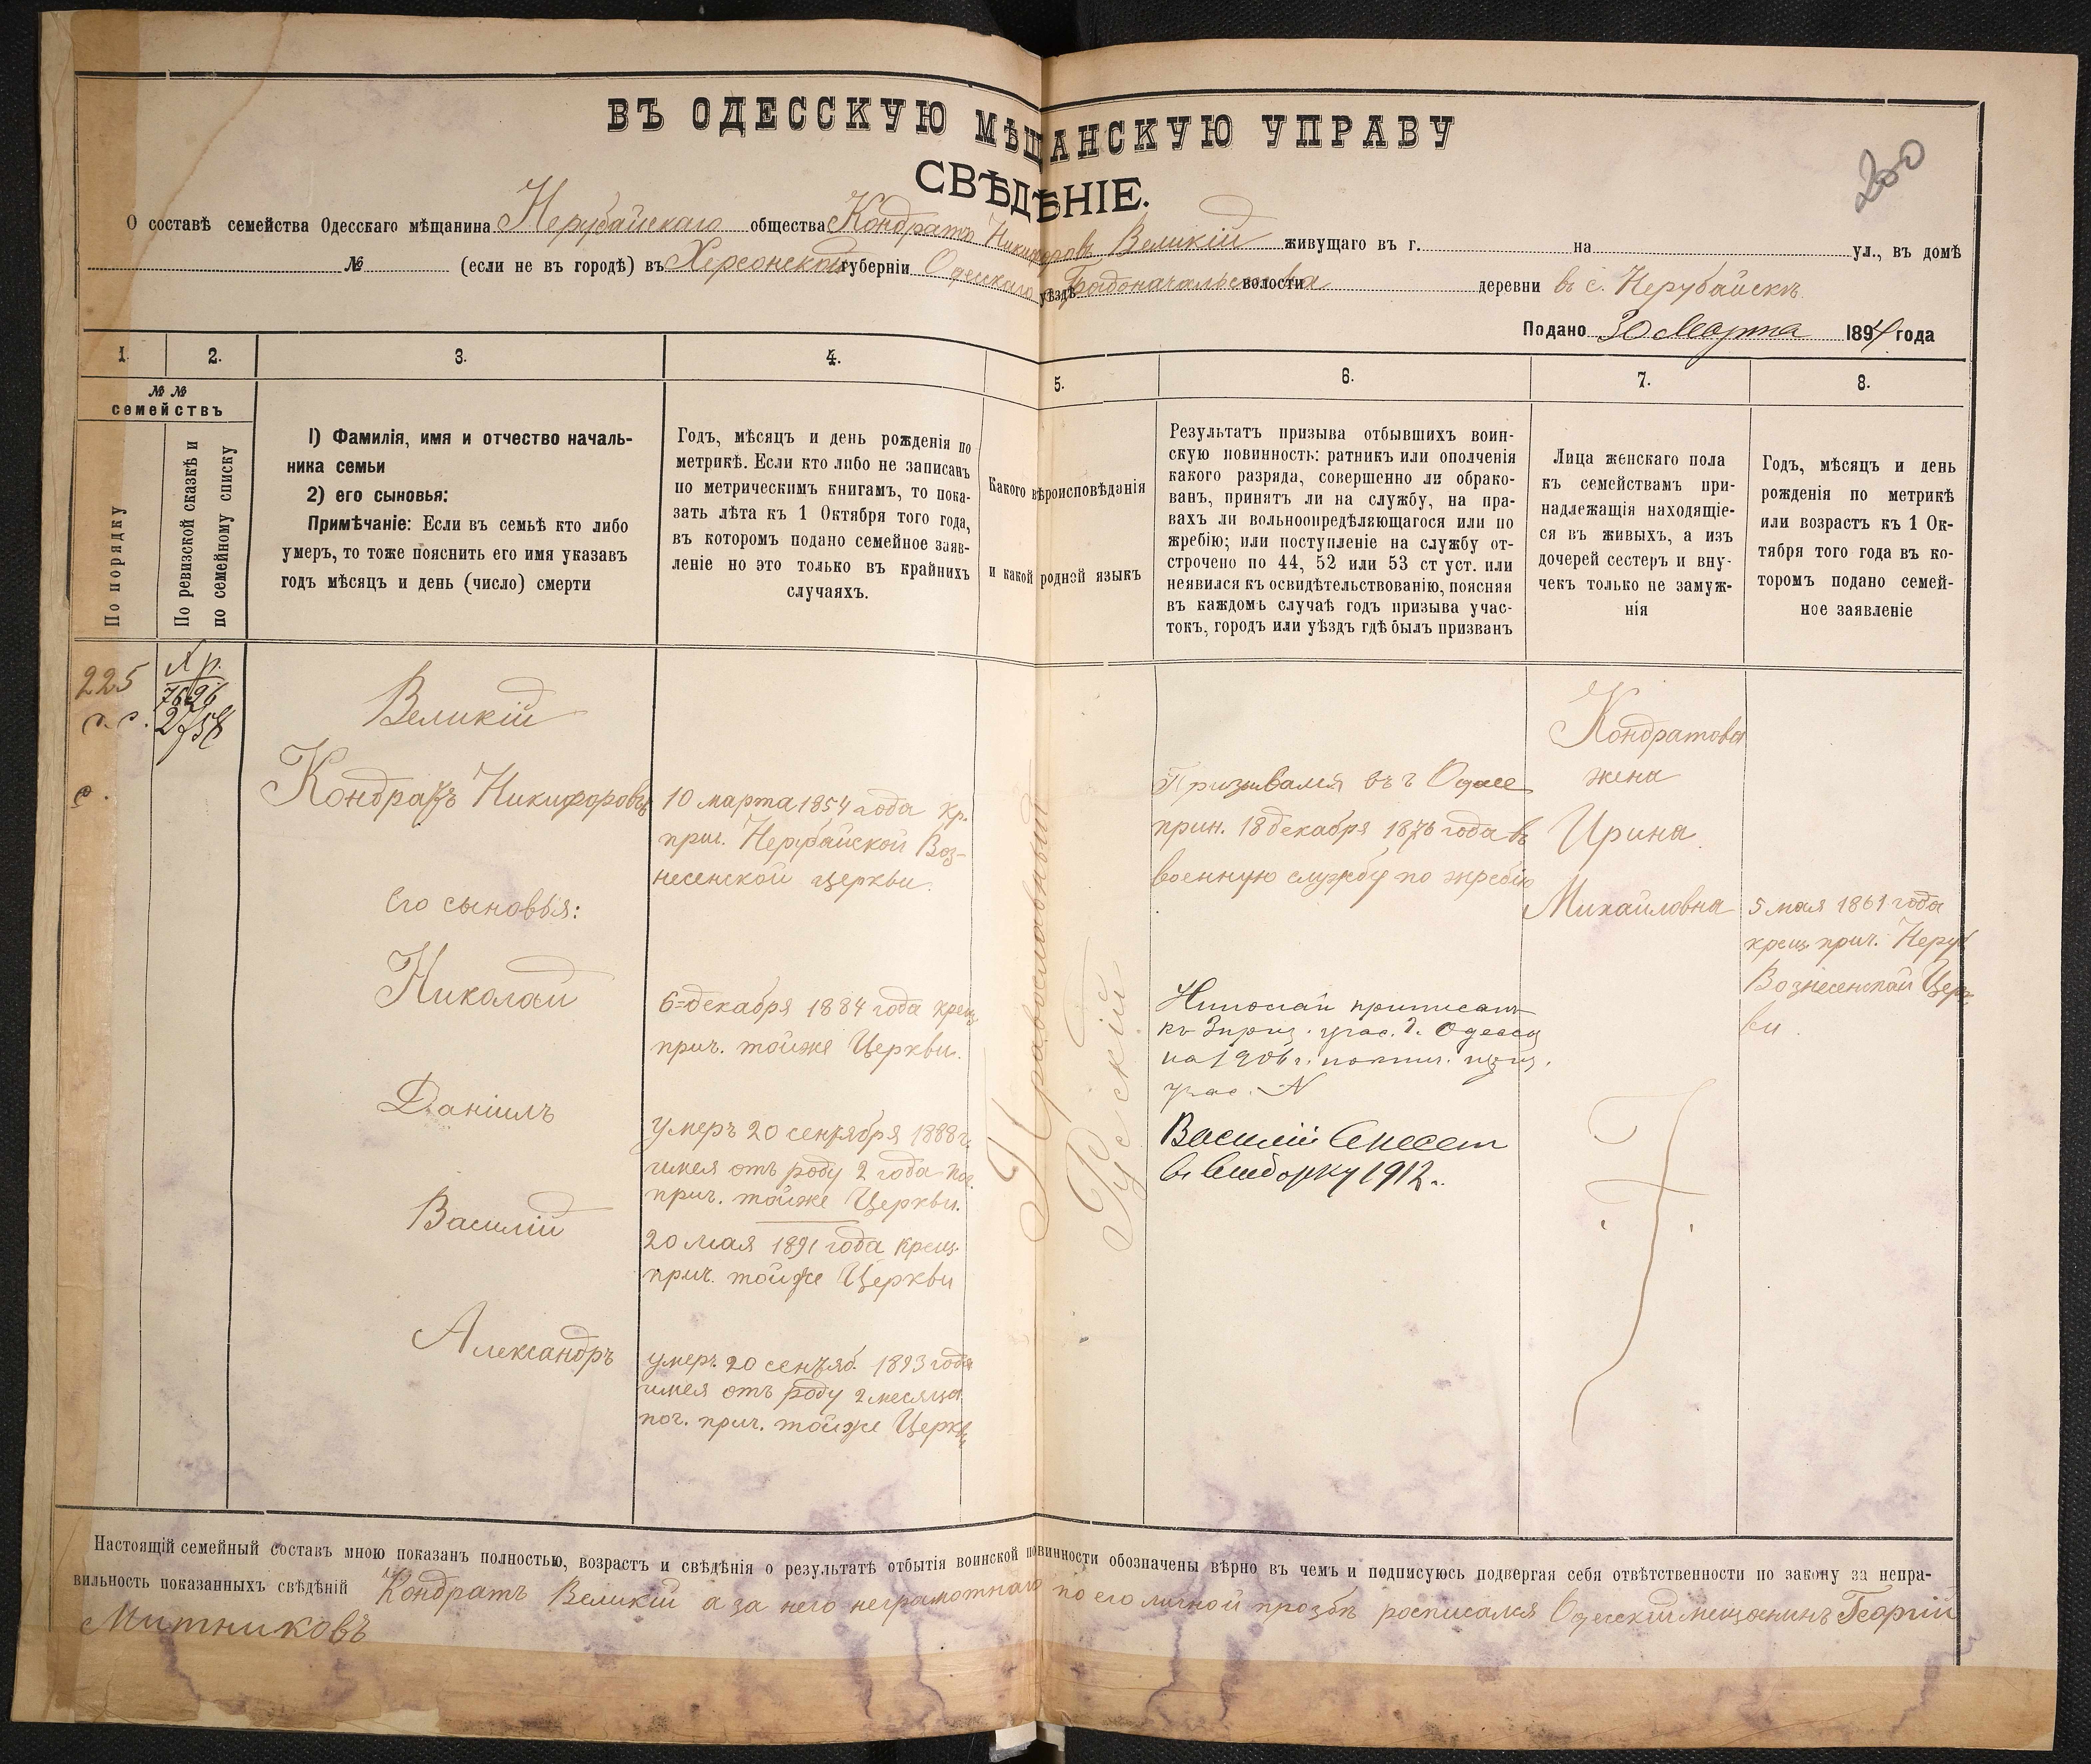 ВЪ ОДЕССКУЮ МѢЩАНСКУЮ УПРАВУ
СВѢДѢНІЕ.
200
О составѣ семейства Одесскаго мѣщанина Нерубайскаго общества Кондратъ Никифоровъ Великій живущаго въ г. на ул., въ домѣ
№ (если не въ городѣ) въ Херсонской губерніи Одесскаго уѣздѣ Градоначальства волости деревни въ с. Нерубайскѣ
Подано 30 Марта 1894 года
1. 2. 3. 4. 5. 6. 7. 8.
№ №
семействъ
По порядку
По ревизской сказкѣ и
по семейному списку
1) Фамилія, имя и отчество началь-
ника семьи
2) его сыновья:
Примѣчаніе: Если въ семьѣ кто либо
умеръ, то тоже пояснить его имя указавъ
годъ мѣсяцъ и день (число) смерти
Годъ, мѣсяцъ и день рожденія по
метрикѣ. Если кто либо не записанъ
по метрическимъ книгамъ, то пока-
зать лѣта къ 1 Октября того года,
въ которомъ подано семейное заяв-
леніе но это только въ крайнихъ
случаяхъ.
Какого вѣроисповѣданія
и какой родной языкъ
Результатъ призыва отбывшихъ воин-
скую повинность: ратникъ или ополченія
какого разряда, совершенно ли обрако-
ванъ, принятъ ли на службу, на пра-
вахъ ли вольноопредѣляющагося или по
жребію; или поступленіе на службу от-
строчено по 44, 52 или 53 ст уст. или
неявился къ освидѣтельствованію, поясняя
въ каждомъ случаѣ годъ призыва учас-
токъ, городъ или уѣздъ гдѣ былъ призванъ
Лица женскаго пола
къ семействамъ при-
надлежащія находящіе-
ся въ живыхъ, а изъ
дочерей сестеръ и вну-
чекъ только не замуж-
нія
Годъ, мѣсяцъ и день
рожденія по метрикѣ
или возрастъ къ 1 Ок-
тября того года въ ко-
торомъ подано семей-
ное заявленіе
225
7696
Великій
Кондратъ Никифоровъ
10 марта 1854 года кр.
прич. Нерубайской Воз-
несенской церкви.
Его сыновья:
Николай
6 декабря 1884 года крещ.
прич. тойже Церкви.
Даніилъ
умеръ 20 сентября 1888 г.
имея отъ роду 2 года пог.
прич. тойже Церкви.
Василій
20 мая 1891 года крещ.
прич. тойже Церкви
Александръ
умеръ 20 сентяб. 1893 года
имея отъ роду 2 месяца
пог. прич. тойже Церкви
Православный
Русскій
Призывался въ г Одессе
прин. 18 декабря 1876 года въ
военную службу по жребію
Николай приписанъ
къ 3 приз. учас. г. Одессы
на 1906 г.
учас. №
Василій
1912 г.
Кондратова
жена
Ирина
Михайловна
5 мая 1861 года
крещ. прич. Неруб
Вознесенской Церк
ви.
Настоящій семейный составъ мною показанъ полностью, возрастъ и свѣдѣнія о результатѣ отбытія воинской повинности обозначены вѣрно въ чемъ и подписуюсь подвергая себя отвѣтственности по закону за непра-
вильность показанныхъ свѣдѣній Кондратъ Великій а за него неграмотнаго по его личной прозбѣ росписался Одесскій мещанинъ Георгій
Митниковъ